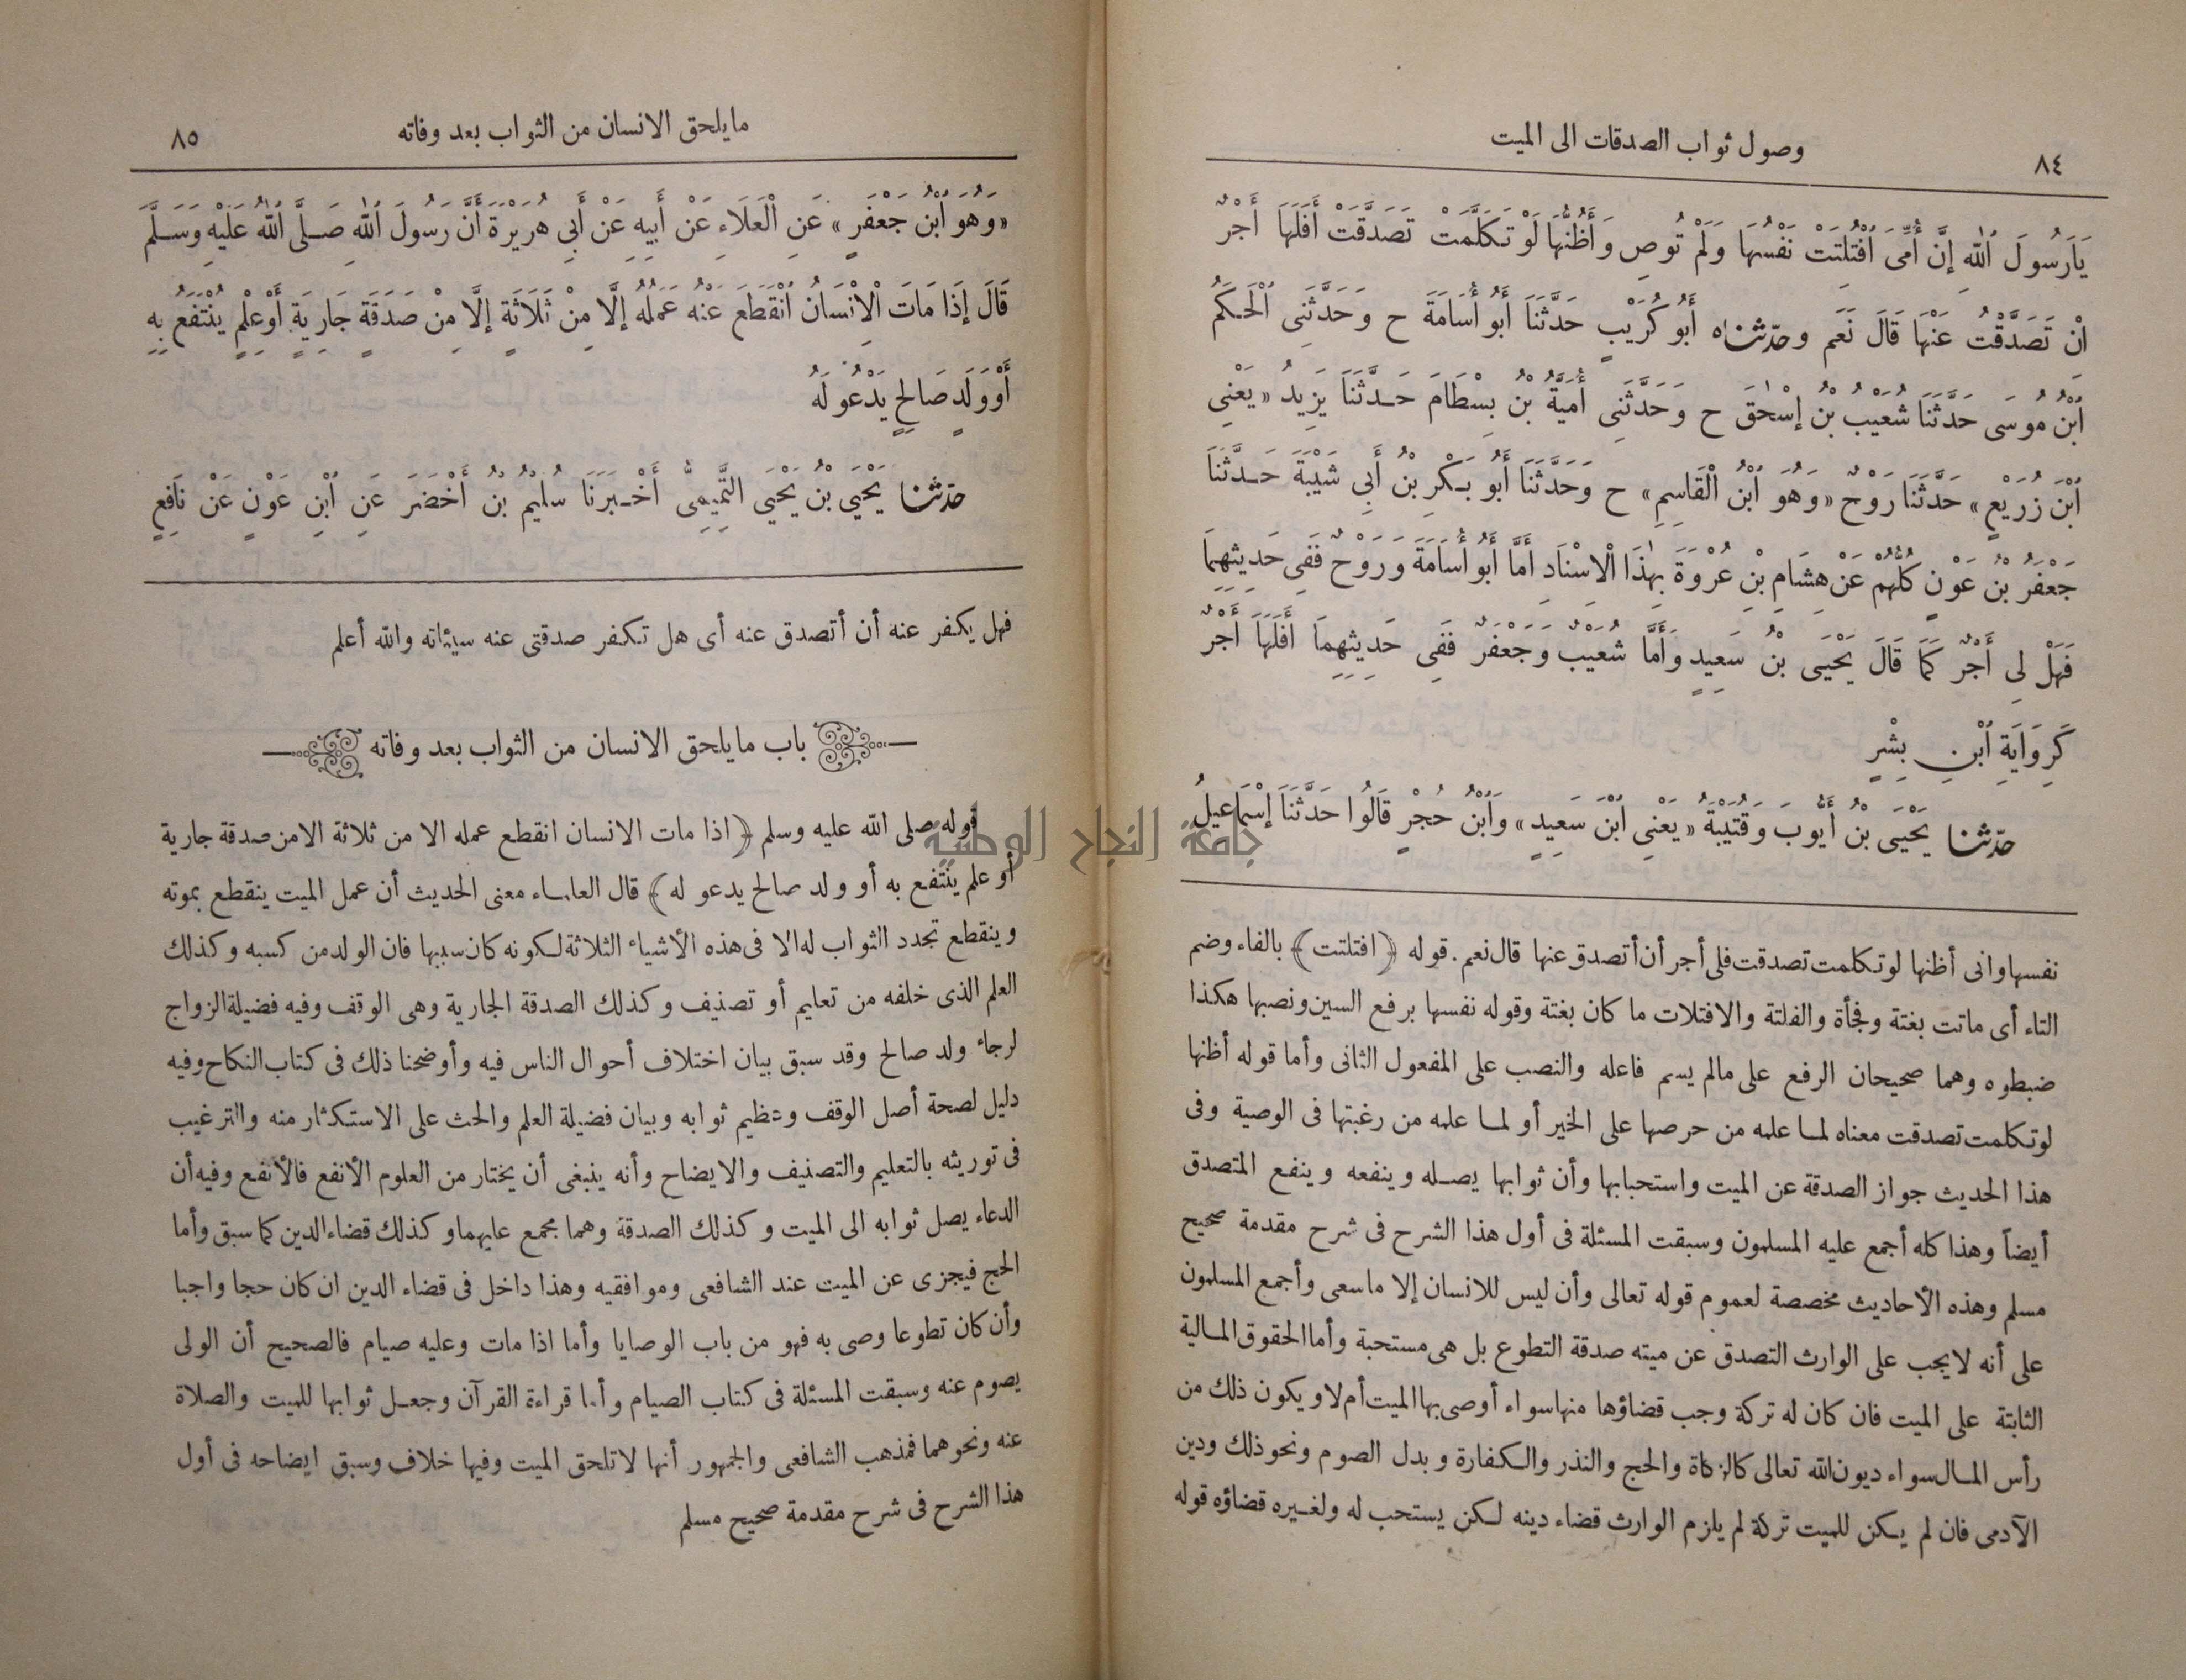 ٨٤
وصول ثواب الصدقات الى الميت
يَارَسُولَ ٱللهِ إِنَّ أُمِّىَ ٱفْتُلِتَتْ نَفْسُهَا وَلَمْ تُوصِ وَأَظُنُّهَا لَوْ تَكَلَّمَتْ تَصَدَّقَتْ أَفَلَهَا أَجْرٌ
إِنْ تَصَدَّقْتُ عَنْهَا قَالَ نَعَمْ وحدّثناه أَبُو كُرَيْبٍ حَدَّثَنَا أَبُو أُسَامَةَ ح وَحَدَّثَنِى ٱلْحَكَمُ
ٱبْنُ مُوسَى حَدَّثَنَا شُعَيْبُ بْنُ إِسْحٰقَ ح وَحَدَّثَنِى أُمَيَّةُ بْنُ بِسْطَامَ حَدَّثَنَا يَزِيدُ «يَعْنِى
ٱبْنَ زُرَيْعٍ» حَدَّثَنَا رَوْحٌ «وَهُوَ ٱبْنُ ٱلْقَاسِمِ» ح وَحَدَّثَنَا أَبُو بَكْرِ بْنُ أَبِى شَيْبَةَ حَدَّثَنَا
جَعْفَرُ بْنُ عَوْنٍ كُلُّهُمْ عَنْ هِشَامِ بْنِ عُرْوَةَ بِهٰذَا ٱلْاِسْنَادِ أَمَّا أَبُو أُسَامَةَ وَرَوْحٌ فَفِى حَدِيثِهِمَا
فَهَلْ لِى أَجْرٌ كَمَا قَالَ يَحْيَى بْنُ سَعِيدٍ وَأَمَّا شُعَيْبٌ وَجَعْفَرٌ فَفِى حَدِيثِهِمَا أَفَلَهَا أَجْرٌ
كَرِوَايَةِ ٱبْنِ بِشْرٍ
حدّثنا يَحْيَى بْنُ أَيُّوبَ وَقُتَيْبَةُ «يَعْنِى ٱبْنَ سَعِيدٍ» وَٱبْنُ حُجْرٍ قَالُوا حَدَّثَنَا إِسْمَاعِيلُ
نفسها وانى أظنها لو تكلمت تصدقت فلى أجر أن أتصدق عنها قال نعم. قوله ﴿افتلتت﴾ بالفاء وضم
التاء أى ماتت بغتة وفجأة والفلتة والافتلات ما كان بغتة وقوله نفسها برفع السين ونصبها هكذا
ضبطوه وهما صحيحان الرفع على مالم يسم فاعله والنصب على المفعول الثانى وأما قوله أظنها
لو تكلمت تصدقت معناه لما علمه من حرصها على الخير أو لما علمه من رغبتها فى الوصية وفى
هذا الحديث جواز الصدقة عن الميت واستحبابها وأن ثوابها يصله وينفعه وينفع المتصدق
أيضاً وهذا كله أجمع عليه المسلمون وسبقت المسئلة فى أول هذا الشرح فى شرح مقدمة صحيح
مسلم وهذه الأحاديث مخصصة لعموم قوله تعالى وأن ليس للانسان إلا ماسعى وأجمع المسلمون
على أنه لايجب على الوارث التصدق عن ميته صدقة التطوع بل هى مستحبة وأما الحقوق المالية
الثابتة على الميت فان كان له تركة وجب قضاؤها منها سواء أوصى بها الميت أم لا ويكون ذلك من
رأس المال سواء ديون الله تعالى كالزكاة والحج والنذر والكفارة وبدل الصوم ونحو ذلك ودين
الآدمى فان لم يكن للميت تركة لم يلزم الوارث قضاء دينه لكن يستحب له ولغيره قضاؤه قوله
مايلحق الانسان من الثواب بعد وفاته
٨٥
«وَهُوَ ٱبْنُ جَعْفَرٍ» عَنِ ٱلْعَلَاءِ عَنْ أَبِيهِ عَنْ أَبِى هُرَيْرَةَ أَنَّ رَسُولَ ٱللهِ صَلَّى ٱللهُ عَلَيْهِ وَسَلَّمَ
قَالَ إِذَا مَاتَ ٱلْاِنْسَانُ ٱنْقَطَعَ عَنْهُ عَمَلُهُ إِلَّا مِنْ ثَلَاثَةٍ إِلَّا مِنْ صَدَقَةٍ جَارِيَةٍ أَوْ عِلْمٍ يُنْتَفَعُ بِهِ
أَوْ وَلَدٍ صَالِحٍ يَدْعُو لَهُ
حدّثنا يَحْيَى بْنُ يَحْيَى التَّمِيمِىُّ أَخْبَرَنَا سُلَيْمُ بْنُ أَخْضَرَ عَنِ ٱبْنِ عَوْنٍ عَنْ نَافِعٍ
فهل يكفر عنه أن أتصدق عنه أى هل تكفر صدقتى عنه سيئاته والله أعلم
باب مايلحق الانسان من الثواب بعد وفاته
قوله صلى الله عليه وسلم ﴿اذا مات الانسان انقطع عمله الا من ثلاثة الا من صدقة جارية
أو علم ينتفع به أو ولد صالح يدعو له﴾ قال العلماء معنى الحديث أن عمل الميت ينقطع بموته
وينقطع تجدد الثواب له الا فى هذه الأشياء الثلاثة لكونه كان سببها فان الولد من كسبه وكذلك
العلم الذى خلفه من تعليم أو تصنيف وكذلك الصدقة الجارية وهى الوقف وفيه فضيلة الزواج
لرجاء ولد صالح وقد سبق بيان اختلاف أحوال الناس فيه وأوضحنا ذلك فى كتاب النكاح وفيه
دليل لصحة أصل الوقف وعظيم ثوابه وبيان فضيلة العلم والحث على الاستكثار منه والترغيب
فى توريثه بالتعليم والتصنيف والايضاح وأنه ينبغى أن يختار من العلوم الأنفع فالأنفع وفيه أن
الدعاء يصل ثوابه الى الميت وكذلك الصدقة وهما مجمع عليهما وكذلك قضاء الدين كما سبق وأما
الحج فيجزى عن الميت عند الشافعى وموافقيه وهذا داخل فى قضاء الدين ان كان حجا واجبا
وأن كان تطوعا وصى به فهو من باب الوصايا وأما اذا مات وعليه صيام فالصحيح أن الولى
يصوم عنه وسبقت المسئلة فى كتاب الصيام وأما قراءة القرآن وجعل ثوابها للميت والصلاة
عنه ونحوهما فمذهب الشافعى والجمهور أنها لاتلحق الميت وفيها خلاف وسبق ايضاحه فى أول
هذا الشرح فى شرح مقدمة صحيح مسلم
جامعة النجاح الوطنية